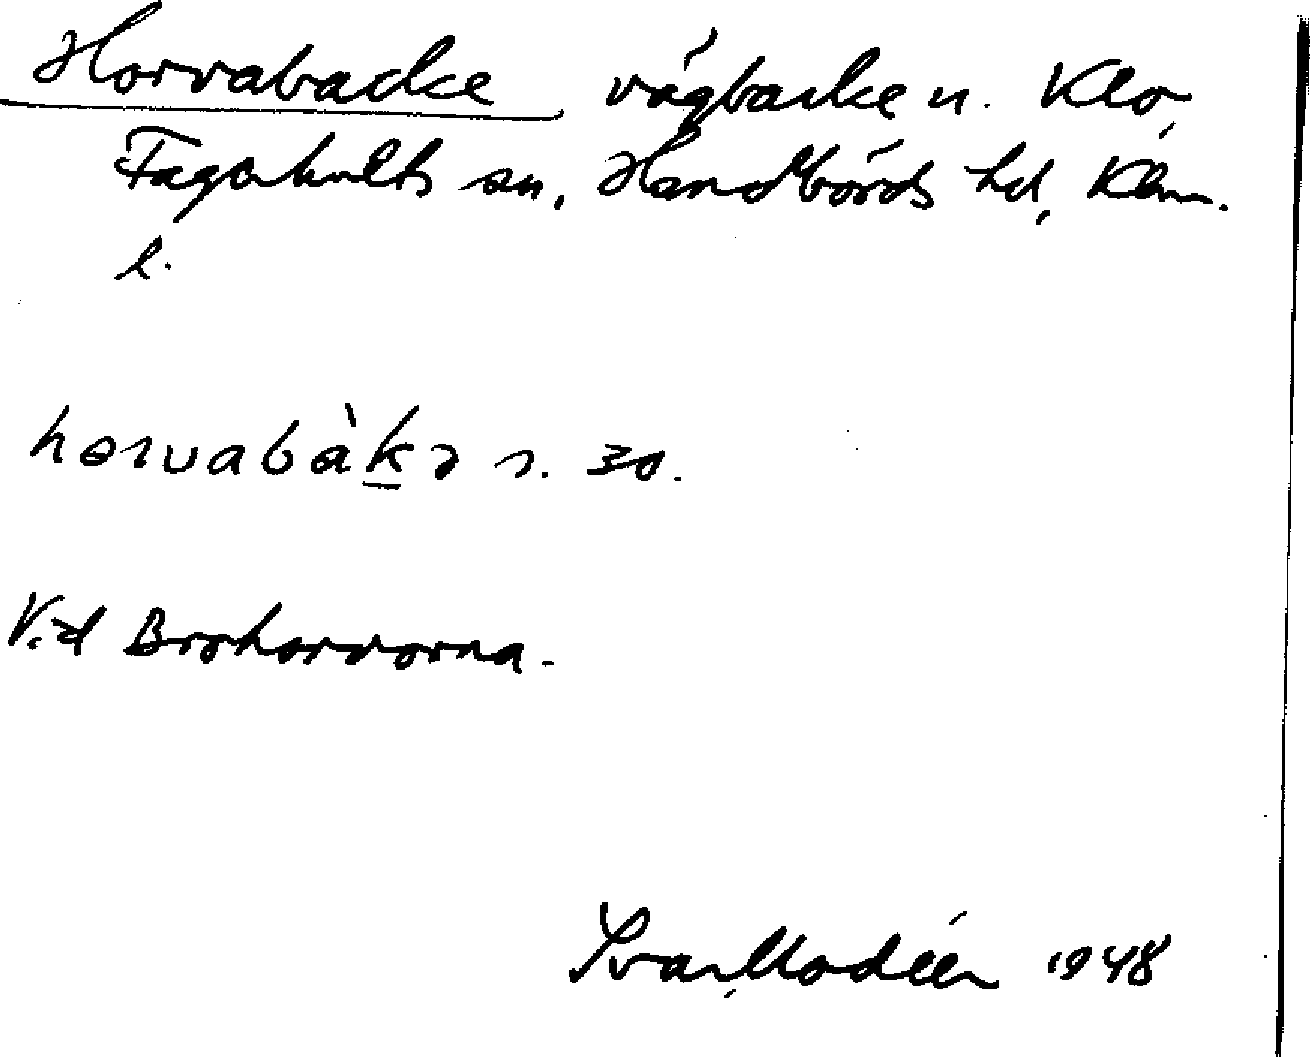 Horvabacke, vägbacke n. Klo,
Fagerhults sn, Handbörds hd, Klm.
l.
horvabàkə s. 30.
Vid Brohorvorna.
Ivar Modéer 1948